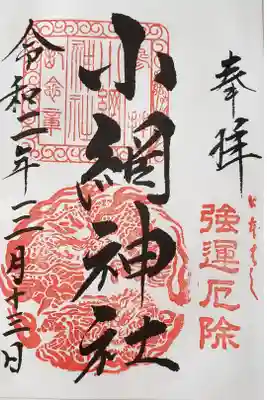 奉拝
強運厄除
小網神社
令和二年三月十三日